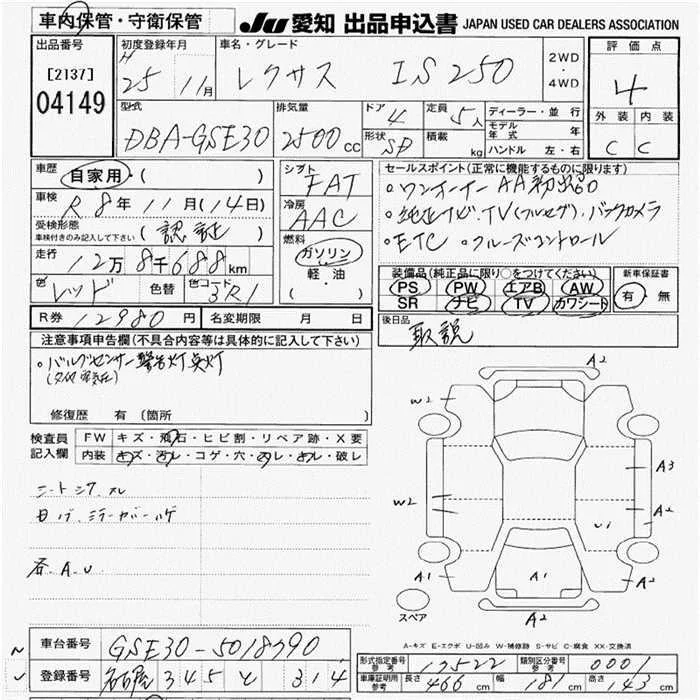 車内保管・守衛保管
JU 愛知 出品申込書 JAPAN USED CAR DEALERS ASSOCIATION
出品番号 初度登録年月 車名・グレード 2WD・4WD 評価点
[2137] H 25年 11月 レクサス IS250 4
04149
外装 内装
C C
型式 排気量 ドア 4 定員 5人 ディーラー・並行
DBA-GSE30 2500cc 形状 SD 積載 kg モデル年式 年
ハンドル 左・右
車歴 自家用・( )
車検 R8年11月(14日)
受検形態 車検付きのみ記入して下さい (認証)
走行 12万8千688km
色 レッド 色替 色コード 3R1
シフト FAT
冷房 AAC
燃料 ガソリン
軽・油
( )
セールスポイント(正常に機能するものに限ります)
・ワンオーナー AA初出品
・純正ナビ、TV(フルセグ)、バックカメラ
・ETC ・クルーズコントロール
装備品(純正品に限り○をつけてください) 新車保証書
PS PW エアB AW 有・無
SR ナビ TV カワシート
後日品
取説
R券 12980円 名変期限 月 日
注意事項申告欄(不具合内容等は具体的に記入して下さい)
・バルブセンサー警告灯点灯
修復歴 有(箇所 )
検査員記入欄 FW キズ・飛石・ヒビ割・リペア跡・X要
内装 キズ・汚レ・コゲ・穴・スレ・オレ・破レ
シートシワ、スレ
各、A、U
A2
W2
A3
W2
A2
U1
A1 A1 A2
A2
スペア
A-キズ E-エクボ U-凹み W-補修跡 S-サビ C-腐食 XX-交換済
車台番号 GSE30-5018790
登録番号 名古屋 345 と 314
形式指定番号 参考 17522 類別区分番号 参考 0001
車庫証明用 参考 長さ 466cm 幅 181cm 高さ 143cm